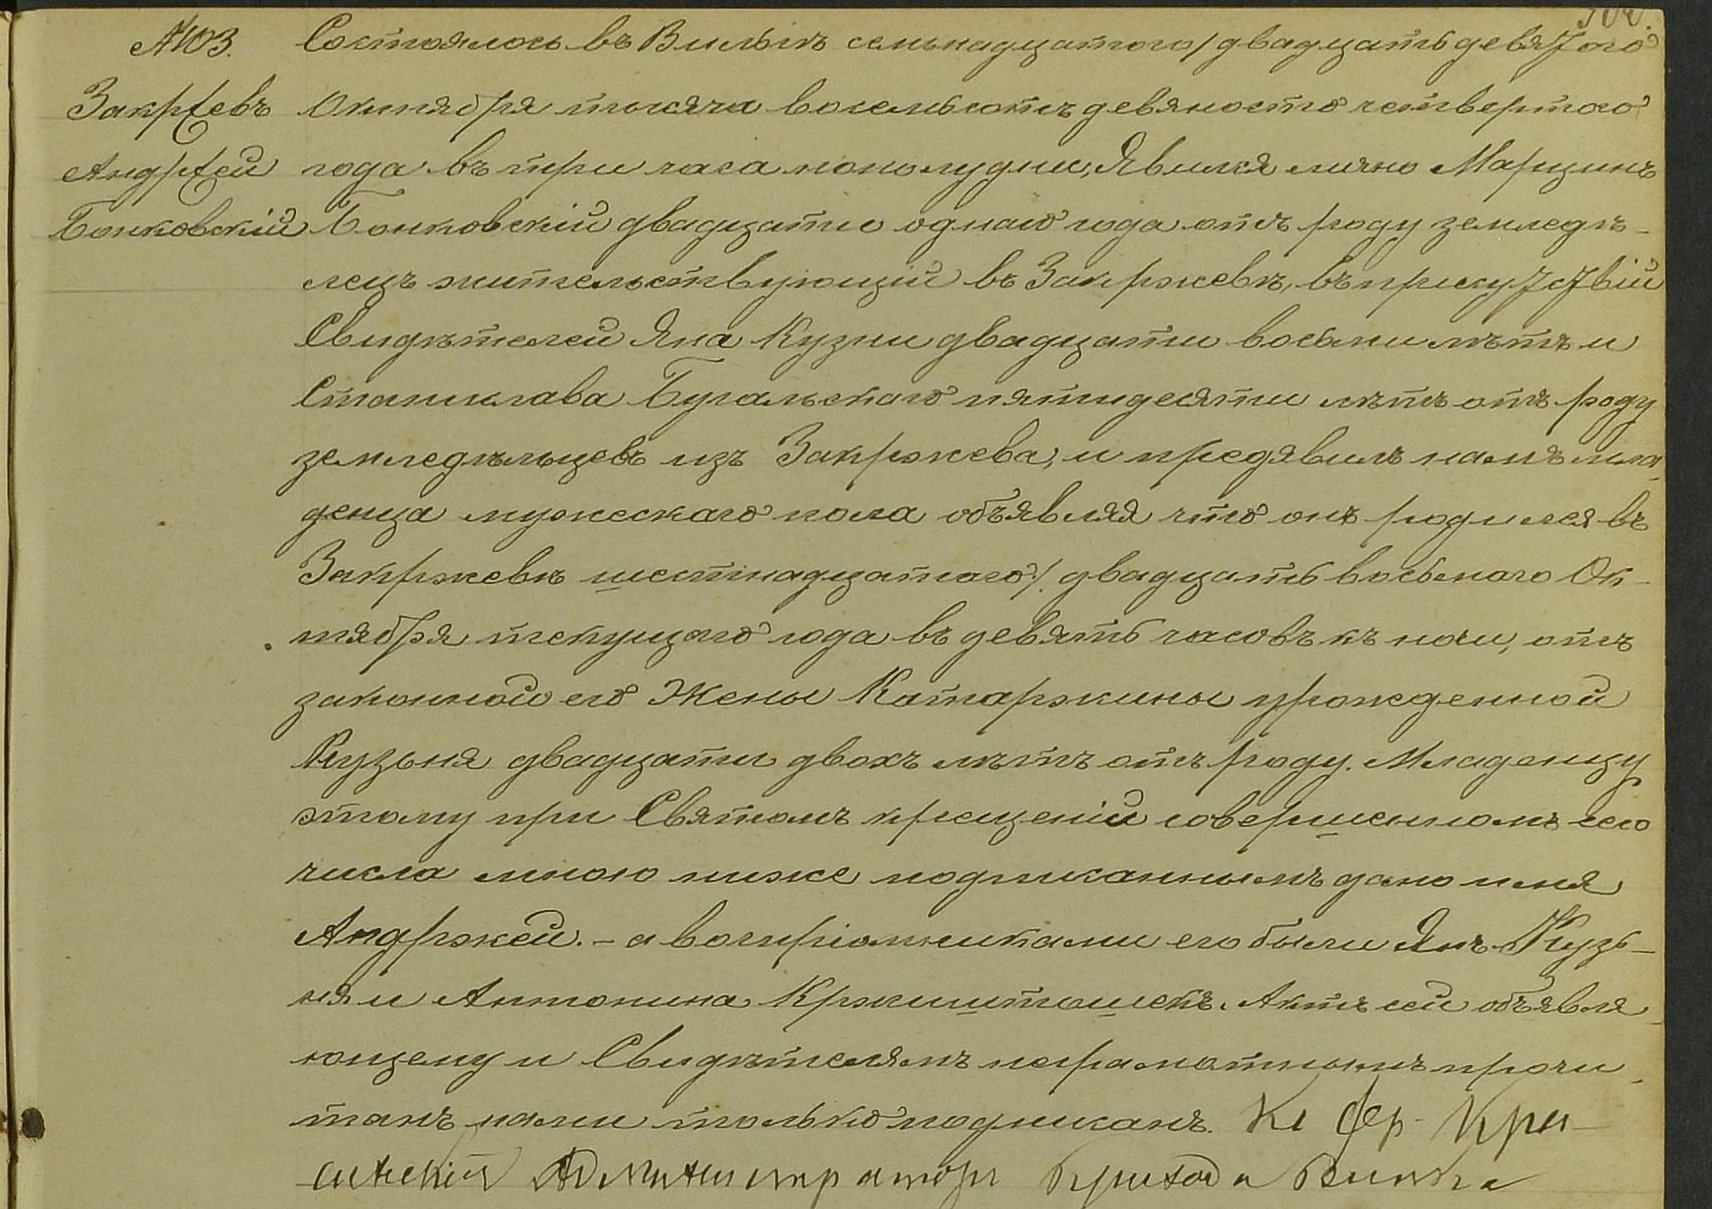 №103. Состоялось въ Вильнѣ семьнадцатого / двадцать девятого
Закржевъ Октября тысяча восемьсотъ девяносто четвертого
Андржей года въ три часа пополудни, Явился лично Марцинъ
Бонковскій Бонковскій двадцати одного года отъ роду земледѣ-
лецъ жительствующій въ Закржевѣ, въ присутствіи
Свидѣтелей Яна Кузни двадцати восьми лѣтъ и
Станислава Бугальского пятидесяти лѣтъ отъ роду
земледѣльцевъ изъ Закржева, и предявилъ намъ мла-
денца мужескаго пола объявляя что онъ родился въ
Закржевѣ шестнадцатого /. двадцать восьмого Ок-
тября текущаго года въ девять часовъ къ ночи, отъ
законной его Жены Катаржины урожденной
Кузьня двадцати двохъ лѣтъ отъ роду. Младенцу
этому при Святомъ крещеніи совершенномъ сего
числа мною ниже подписаннымъ дано имя
Андржей. - а восприемниками его были Янъ Кузь-
ня и Антонина Кржиштошекъ. Актъ сей объявля-
ющему и Свидѣтелямъ неграмотнымъ прочи-
танъ нами только подписанъ. Кс Фер. Кра-
Администраторъ Прихода